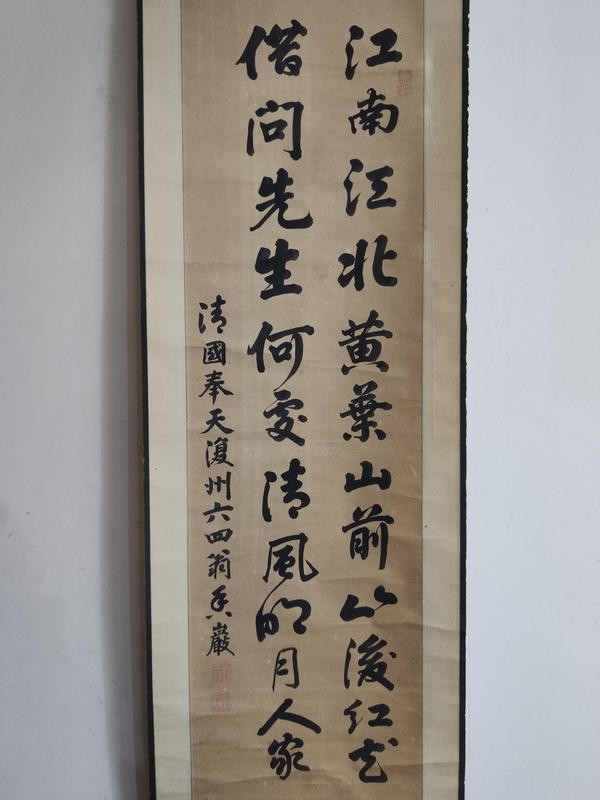 江南江北黄葉山前山後紅花
借問先生何處清風明月人家
清國奉天復州六四翁香巖